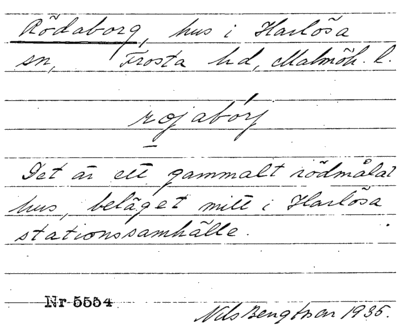 Rödaborg, hus i Harlösa
sn, Frosta hd, Malmöh. l.
rojabórj
Det är ett gammalt rödmålat
hus, beläget mitt i Harlösa
stationssamhälle.
Nr 5554
Nils Bengtson 1935.